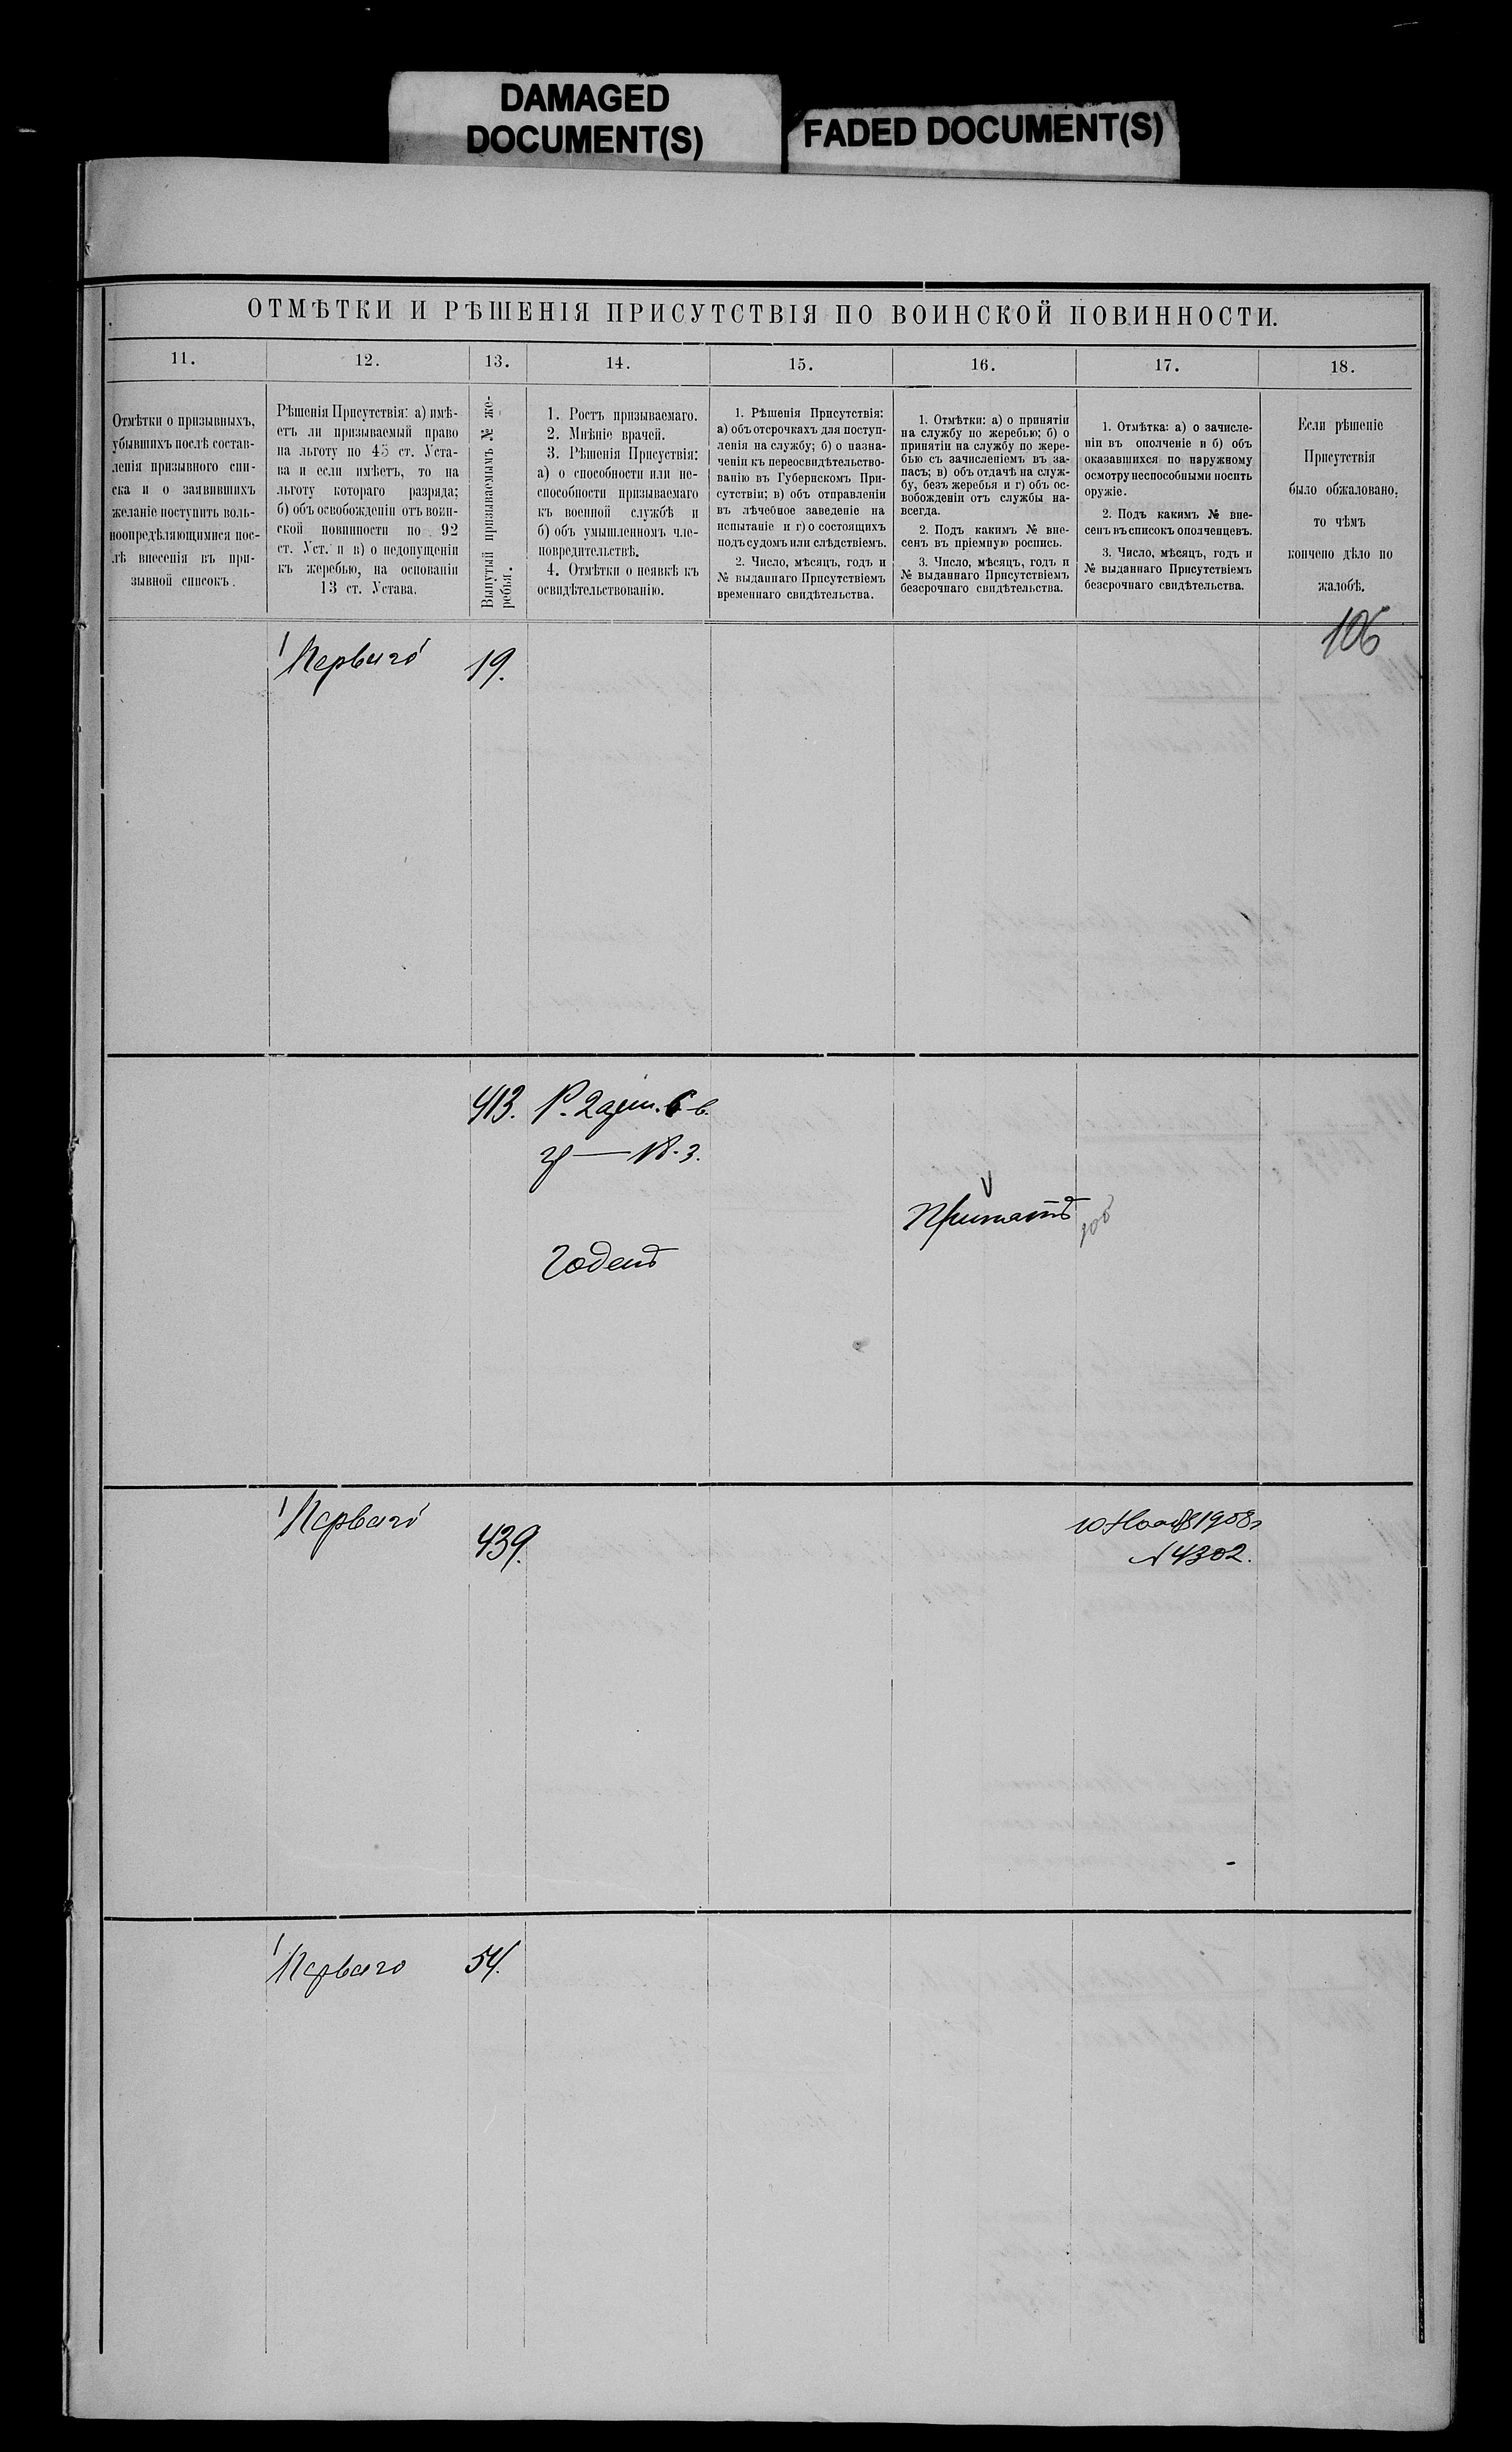 DAMAGED
DOCUMENT(S)
FADED DOCUMENT(S)
ОТМѢТКИ И РѢШЕНІЯ ПРИСУТСТВІЯ ПО ВОИНСКОЙ ПОВИННОСТИ.
11.
12.
13.
14.
15.
16.
17.
18.
Отмѣтки о призывныхъ,
убывшихъ послѣ состав-
ленія призывного спи-
ска и о заявившихъ
желаніе поступить воль-
ноопредѣляющимися пос-
лѣ внесенія въ при-
зывной списокъ.
Рѣшенія Присутствія: а) имѣ-
етъ ли призываемый право
на льготу по 45 ст. Уста-
ва и если имѣетъ, то на
льготу котораго разряда;
б) объ освобожденіи отъ воин-
ской повинности по 92
ст. Уст. и в) о недопущеніи
къ жеребью, на основаніи
13 ст. Устава.
Вынутый призываемымъ № же-
ребья.
1. Ростъ призываемаго.
2. Мнѣніе врачей.
3. Рѣшенія Присуствія:
а) о способности или не-
способности призываемаго
къ военной службѣ и
б) объ умышленномъ чле-
новредительствѣ.
4. Отмѣтки о неявкѣ къ
освидѣтельствованію.
1. Рѣшенія Присутствія:
а) объ отсрочкахъ для поступ-
ленія на службу; б) о назна-
ченіи къ переосвидѣтельство-
ванію въ Губернскомъ При-
сутствіи; в) объ отправленіи
въ лѣчебное заведеніе на
испытаніе и г) о состоящихъ
подъ судомъ или слѣдствіемъ.
2. Число, мѣсяцъ, годъ и
№ выданнаго Присутствіемъ
временнаго свидѣтельства.
1. Отмѣтки: а) о принятіи
на службу по жеребью; б) о
принятіи на службу по жере-
бью съ зачисленіемъ въ за-
пасъ; в) объ отдачѣ на служ-
бу, безъ жеребья и г) объ ос-
вобожденіи отъ службы на-
всегда.
2. Подъ какимъ № вне-
сенъ въ пріемную роспись.
3. Число, мѣсяцъ, годъ и
№ выданнаго Присутствіемъ
безсрочнаго свидѣтельства.
1. Отмѣтка: а) о зачисле-
ніи въ ополченіе и б) объ
оказавшихся по наружному
осмотру неспособными носить
оружіе.
2. Подъ какимъ № вне-
сенъ въ списокъ ополченцевъ.
3. Число, мѣсяцъ, годъ и
№ выданнаго Присутствіемъ
безсрочнаго свидѣтельства.
Если рѣшеніе
Присутствія
было обжаловано,
то чѣмъ
кончено дѣло по
жалобѣ.
106
Перваго 19.
413. Р. 2 арш. 6 в.
18.
Принятъ
Годенъ
Перваго 439. 10 Нояб 1908 г
№ 4302.
Перваго 54.